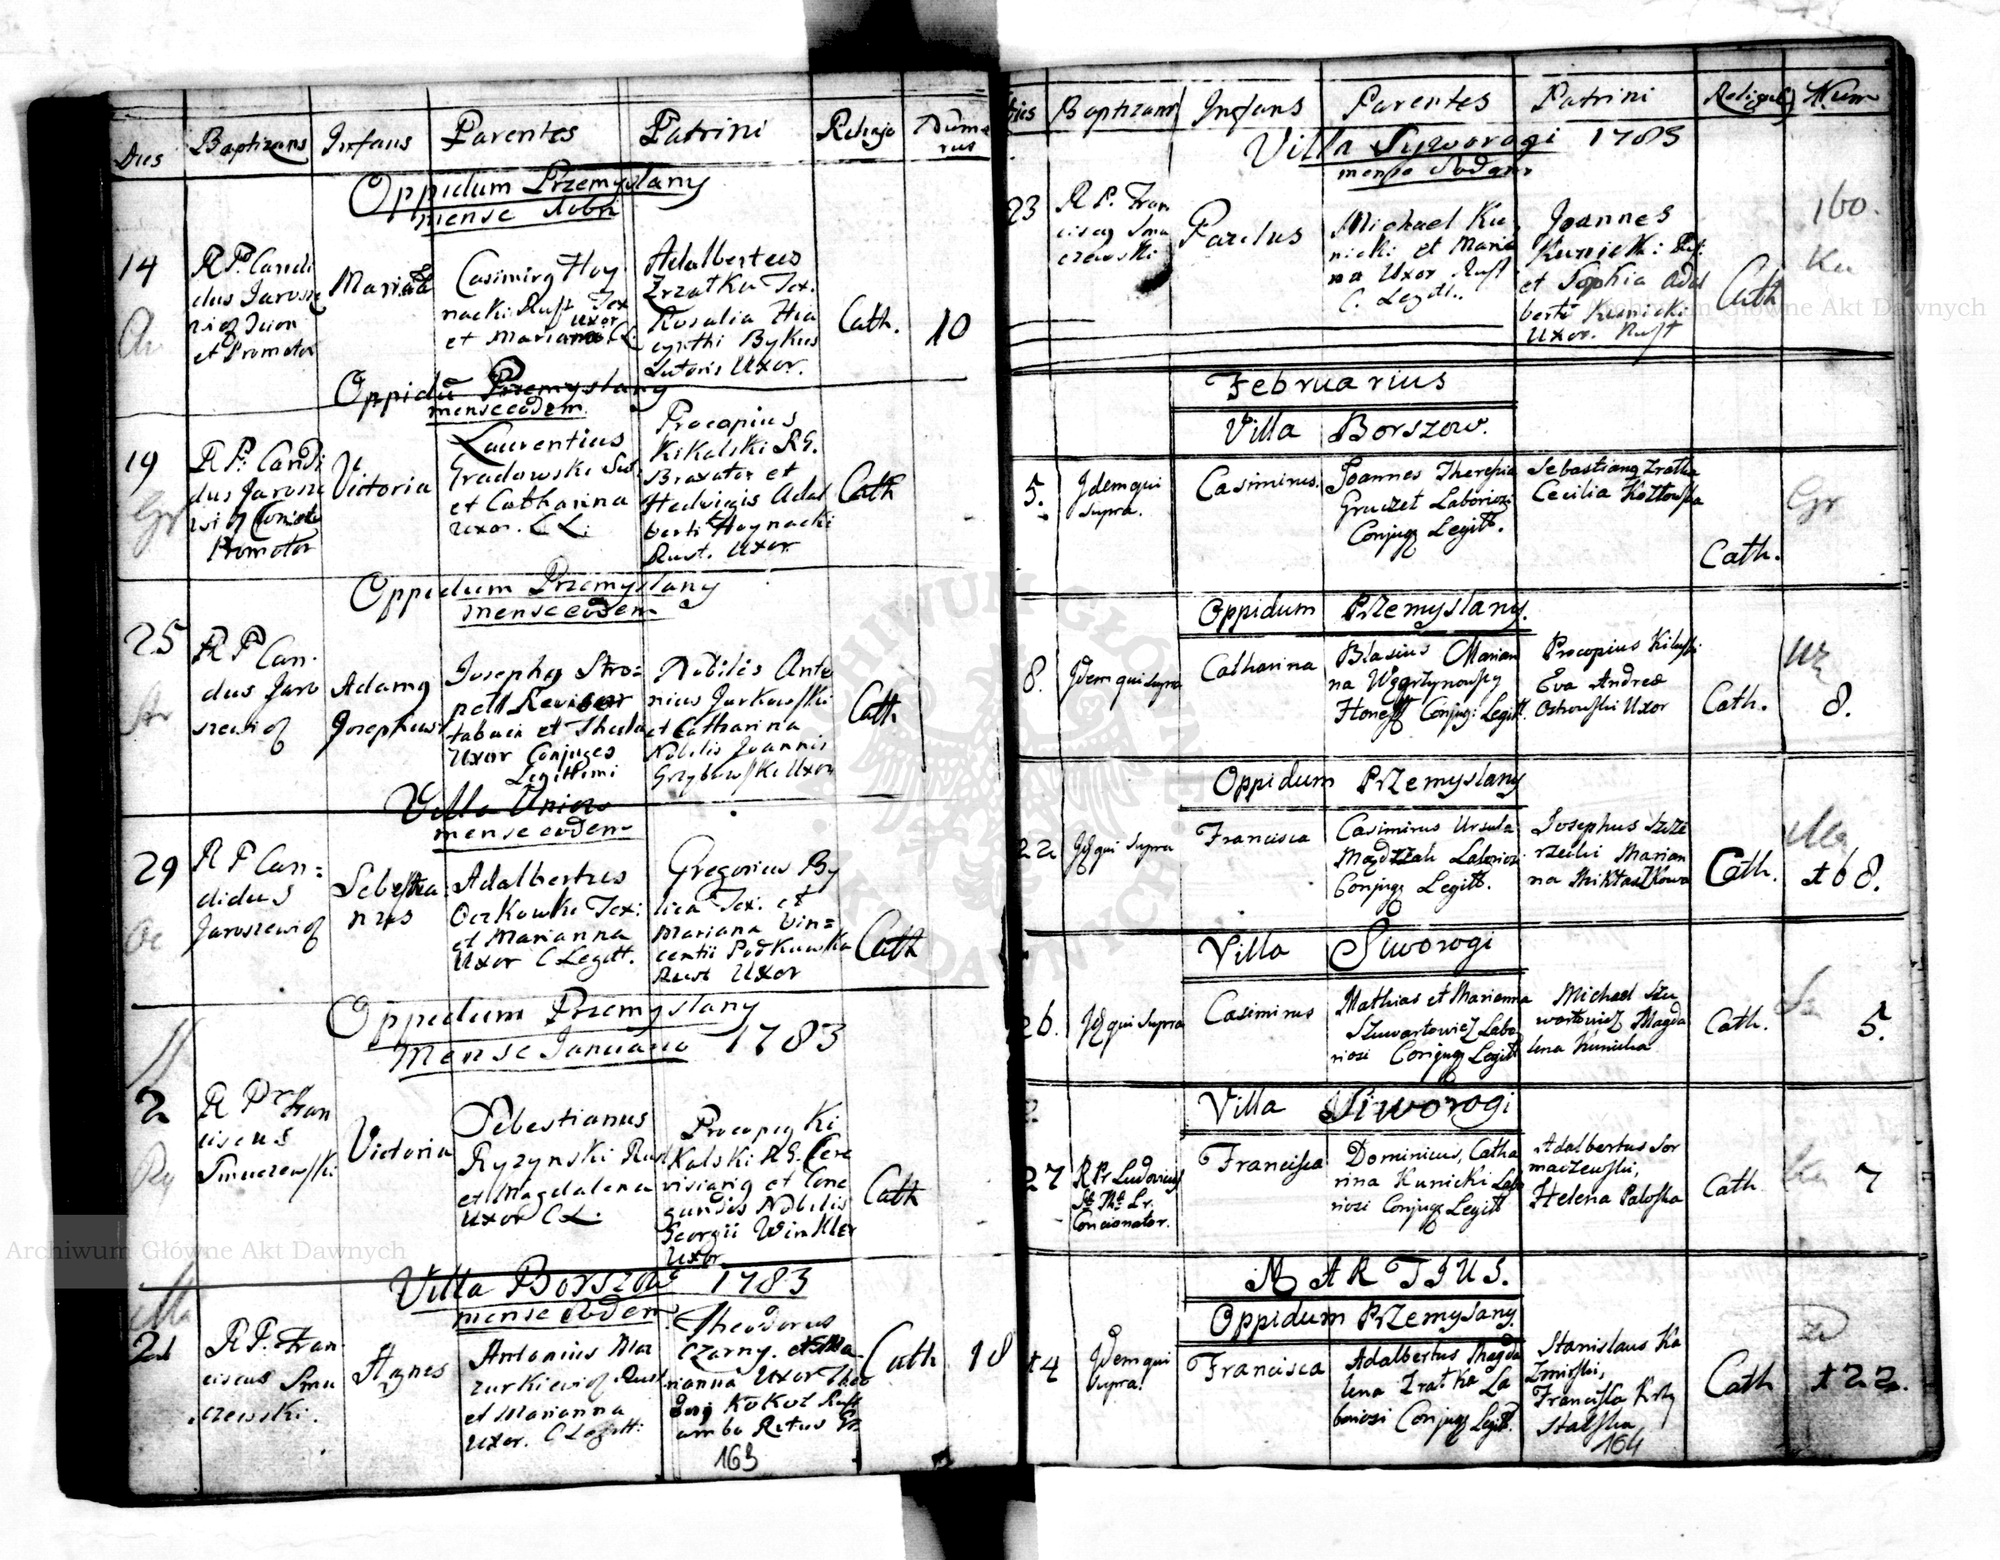 Dies Baptizans Infans Parentes Patrini Religio Nume
rus
Oppidum Przemyslany
mense
14
R P. Candi
dus Jarosze
et Promotor
Marianna
Casimirg Hoy
nacki Rust Tex
uxor
et Marianna C L.
Adalbertus
Zrzatka Tex.
Rosalia Hia
cynthi Bykus
Sutoris Uxor.
Cath.
10
Oppidū Przemyslany
mense eodem
19
Gr
R P. Candi
dus Jarosze
Promotor
Victoria
Laurentius
Gradowski
et Catharina
uxor. C L.
Procopius
Kikalski R G.
Braxator et
Hedvigis Adal
berti Hoynacki
Rust. Uxor
Cath
Oppidum Przemyslany
mense eodem
25
R P Can
dus Jaro
szewicz
Adamg
Josephus
Josephg Stro=
Revisor
tabaci et Thecla
Uxor Conjuges
Legittimi
Nobilis Anto
nius Jurkowski
et Catharina
Nobilis Joannis
Grzybowski Uxor
Cath
Villa Uniow
mense eodem
29
Oc
R P Can=
didus
Jaroszewicz
Sebestia
nus
Adalbertus
Oczkowski Tex:
et Marianna
Uxor C Legitt.
Gregorius By
lica Tex. et
Mariana Vin=
centii Podkowka
Rust Uxor
Cath
Oppidum Przemyslany
Mense Januario 1783
2
Ry
R Pr Fran
ciscus
Smuczewski
Victoria
Sebestianus
Ryzynski Rust
et Magdalena
Uxor C L.
Procopig Ki
kalski R G. Cere
visiarig et Cone
gundis Nobilis
Georgii Winkler
Uxor
Cath
Villa Borszow 1783
mense eodem
Ma
21
R P. Fran
ciscus Smu
czewski.
Agnes
Antonius Ma
zurkiewicz Rust
et Marianna
uxor. C Legitt:
Theodorus
Czarny. et Ma
rianna Uxor Theo
dori Kokot Rust
ambo Ritus Gr.
Cath
18
163
Dies Baptizans Infans Parentes Patrini Religio Num
Villa Syworogi 1783
mense
23
R P. Fran
ciscg Smu
czewski
Paulus
Michael Ku
nicki et Maria
na Uxor Rust
C. Legitt.
Joannes
Kunicki Rust.
et Sophia Adal
berti Kunicki
Uxor. Rust
Cath
160.
Ku
Februarius
Villa Borszow.
5.
Jdem qui
supra.
Casimirus.
Joannes Theresia
Gruczet Laboriosi
Conjugg Legitt.
Sebastiang Zratka
Cecilia Kozłowska
Cath.
Gr
Oppidum Przemyslany.
8.
Jdem qui supra
Catharina
Blasius Marian
na Węgrzynowscy
Honesti Conjugi Legitt.
Procopius Kikalski
Eva Andreæ
Ostrowski Uxor
Cath.
8.
Oppidum Przemyslany
22
Jd qui supra
Francisca
Casimirus Ursula
Laboriosi
Conjugg Legitt.
Josephus
Marian
na Miktaszkowa
Cath.
Ma
168.
Villa Siworogi
26.
Jd qui supra
Casimirus
Mathias et Marianna
Szuwartowicz Labo
riosi Conjugg Legitt
Michael Szu
wartowicz Magda
lena Kunicka
Cath.
Sz
5.
Villa Siworogi
27
R Pr Ludovicus
Concionator.
Francisca
Dominicus, Catha
rina Kunicki Labo
riosi Conjugg Legitt
Adalbertus Sor
maczewski,
Helena Paloska
Cath
Ku
7
MARTIUS.
Oppidum Przemyslany.
14
Jdem qui
supra.
Francisca
Adalbertus Magda
lena Zratka La
boriosi Conjugg Legitt.
Stanislaus Ka
zmirski,
Francisca Krzy
stalska
Cath
122.
164
Archiwum Główne Akt Dawnych
Archiwum Główne Akt Dawnych
ARCHIWUM GŁÓWNE AKT DAWNYCH